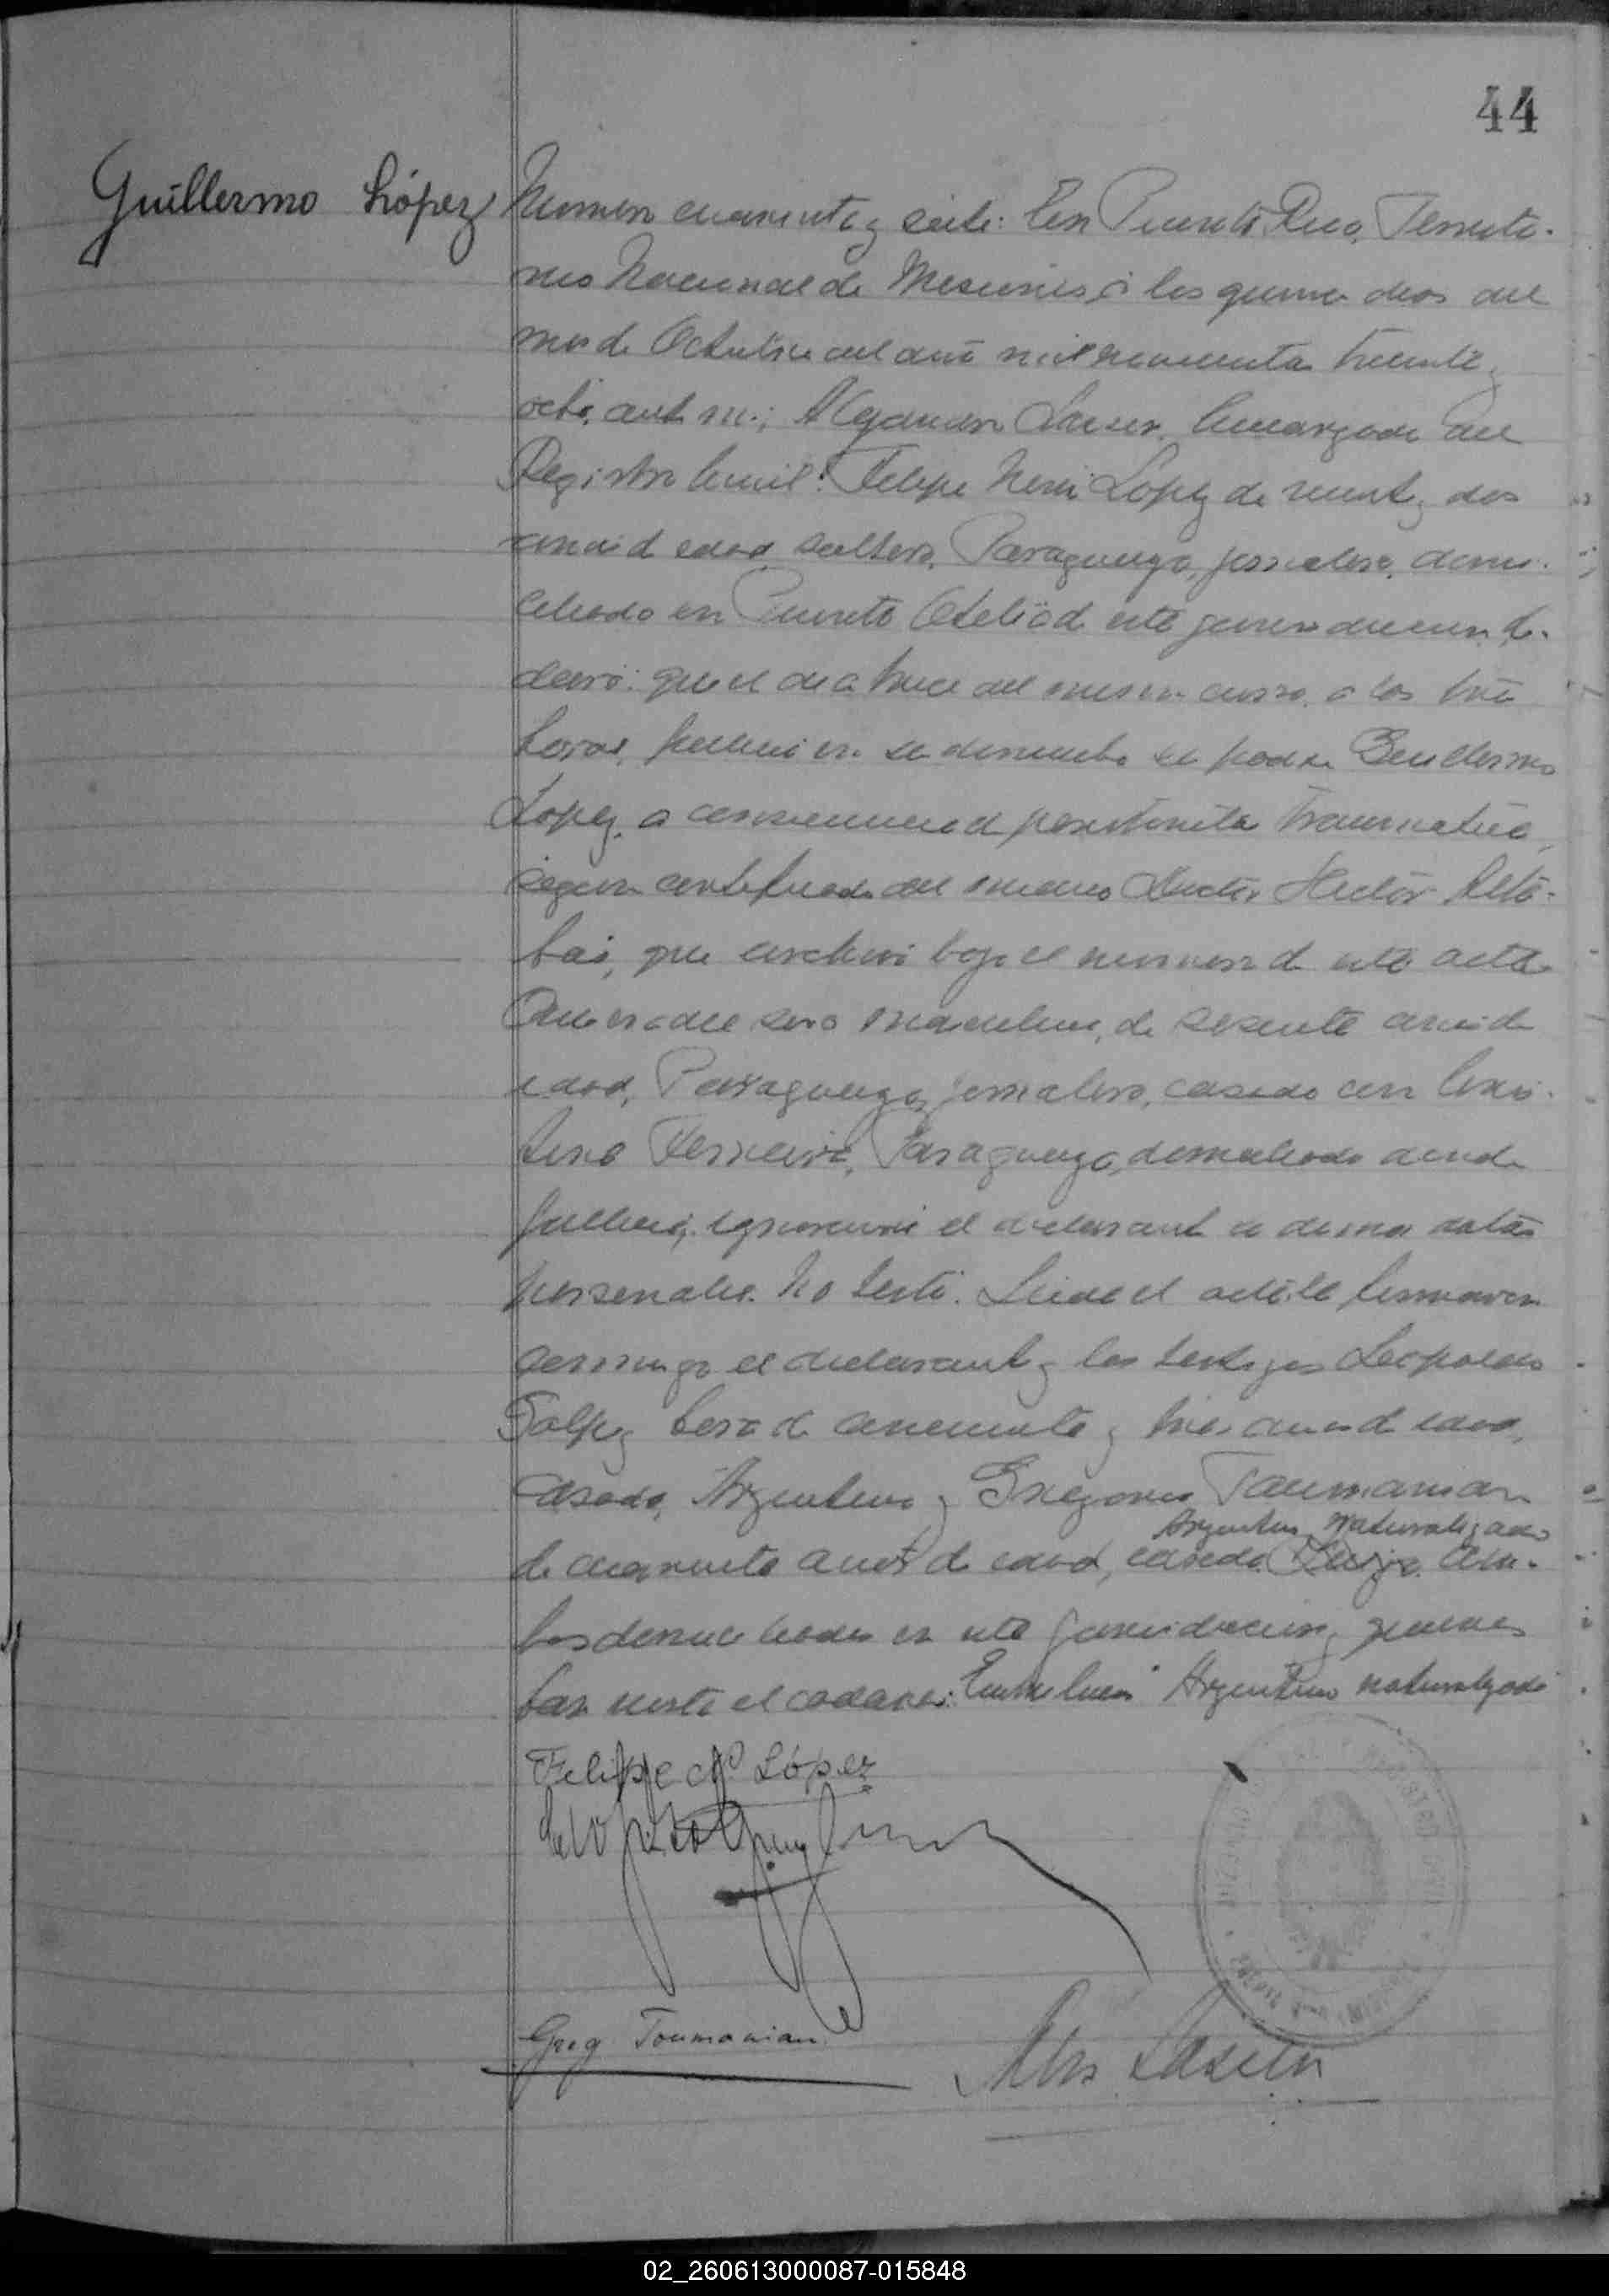 44
Guillermo López
Numero cuarenta y siete: En Puerto Rico, Territo-
rio Nacional de Misiones, á los quince dias del
mes de Octubre del año mil novecientos treinta y
ocho, ante mi; Alejandro Encargado del
Registro Civil: Felipe Neri López de veinte y dos
años de edad, soltero, Paraguayo, jornalero, domi-
ciliado en Puerto de esta jurisdiccion,
declaró: que el dia trece del mes en curso, a las tres
horas, falleció en su domicilio su padre Guillermo
López, a consecuencia de peritonitis traumatica,
segun certificado del medico Doctor Hector
que archivo bajo el numero de esta acta
Que era del sexo masculino, de sesenta años de
edad, Paraguayo, jornalero, casado con
Ferreira, Paraguaya, domiciliado donde
falleció, ignorando el declarante los demas datos
personales. No testó. Leida el acta la firmaron
conmigo el declarante y los testigos Leopoldo
de cincuenta y tres años de edad,
casado, Argentino y Gregorio Toumanian
Argentino naturalizado
de cuarenta años de edad, casado, am-
bos domiciliados en esta jurisdiccion, quienes
han visto el cadaver: Entre lineas Argentino naturalizado
Felipe N. López
Greg Toumanian
02_260613000087-015848